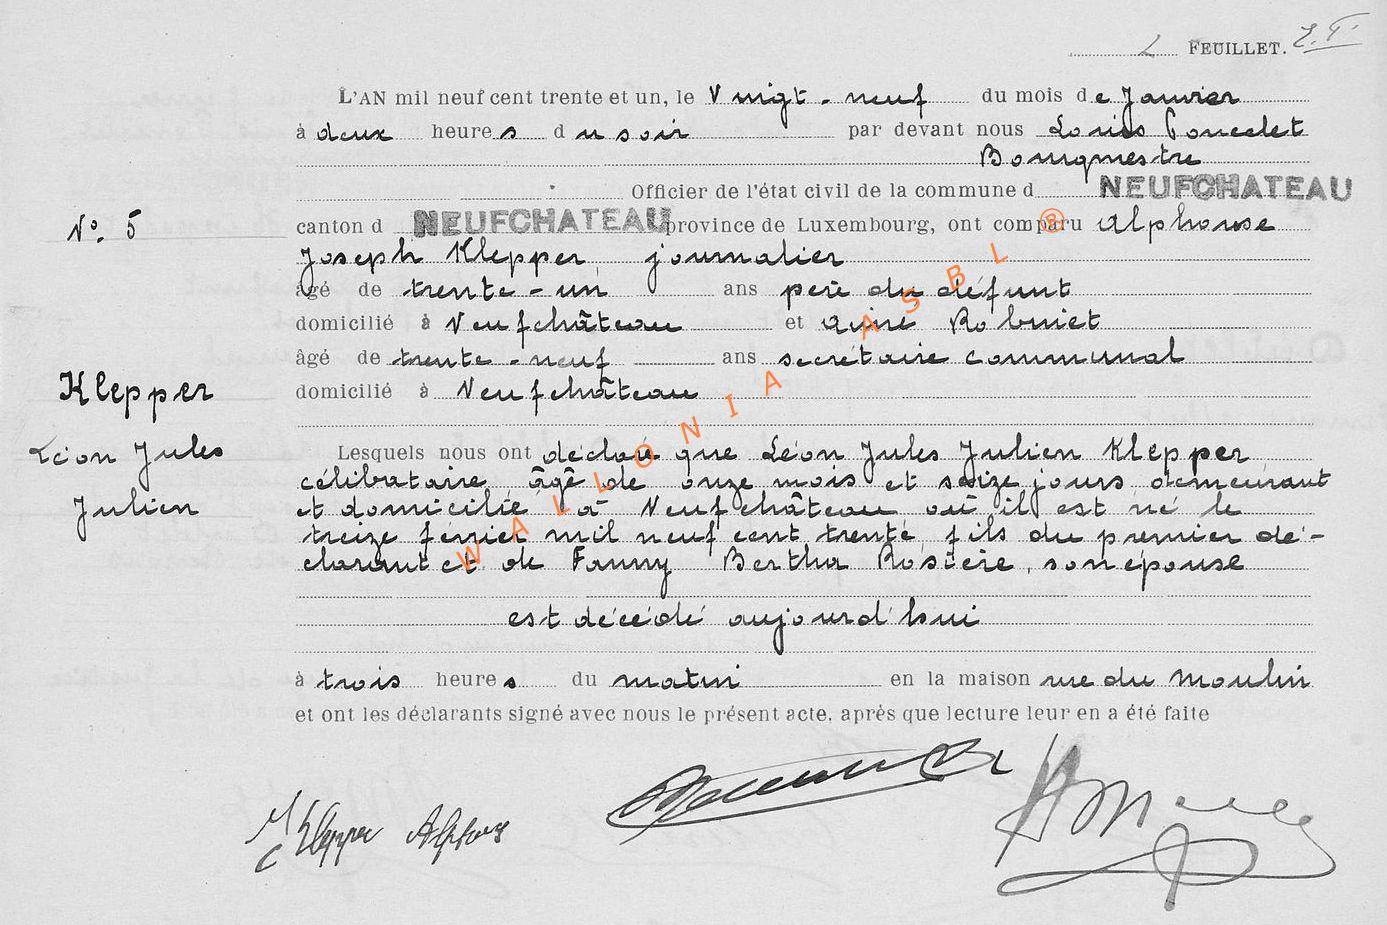 2 FEUILLET.
L'AN mil neuf cent trente et un, le Vingt-neuf du mois de Janvier
à deux heures du soir par devant nous Louis Poncelet
Bourgmestre
Officier de l'état civil de la commune d NEUFCHATEAU
N° 5
canton d NEUFCHATEAU province de Luxembourg, ont comparu Alphonse
Joseph Klepper, journalier
âgé de trente-un ans père du défunt
domicilié à Neufchâteau et Aimé Robinet
âgé de trente-neuf ans secrétaire communal
Klepper
domicilié à Neufchâteau
Léon Jules
Julien
Lesquels nous ont déclaré que Léon Jules Julien Klepper
célibataire âgé de onze mois et seize jours demeurant
et domicilié à Neufchâteau où il est né le
treize février mil neuf cent trente, fils du premier dé-
clarant et de Fanny Bertha Rosière, son épouse
est décédé aujourd'hui
à trois heures du matin en la maison rue du Moulin
et ont les déclarants signé avec nous le présent acte, après que lecture leur en a été faite
Klepper Alphonse
WALLONIA ASBL ®